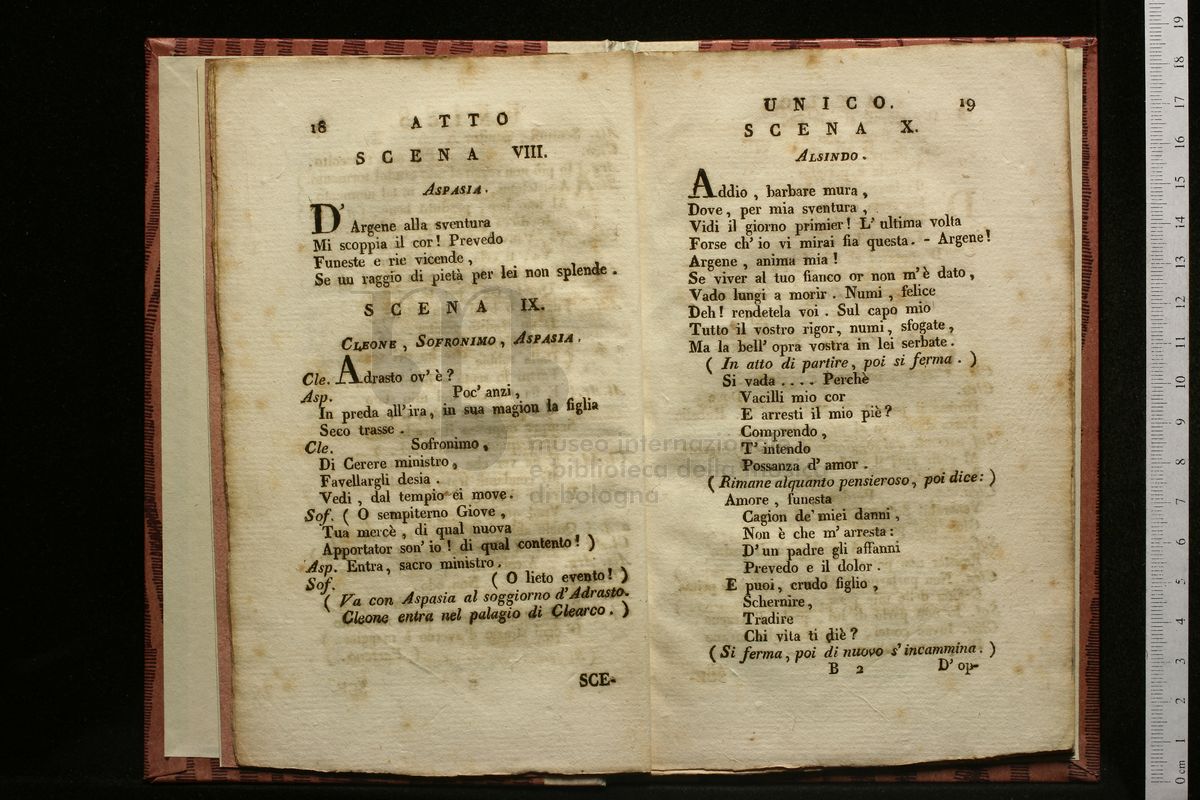 18 ATTO
SCENA VIII.
ASPASIA.
D' Argene alla sventura
Mi scoppia il cor! Prevedo
Funeste e rie vicende,
Se un raggio di pietà per lei non splende.
SCENA IX.
CLEONE, SOFRONIMO, ASPASIA.
Cle. Adrasto ov' è?
Asp. Poc' anzi,
In preda all' ira, in sua magion la figlia
Seco trasse.
Cle. Sofronimo,
Di Cerere ministro,
Favellargli desia.
Vedi, dal tempio ei move.
Sof. ( O sempiterno Giove,
Tua mercè, di qual nuova
Apportator son' io! di qual contento! )
Asp. Entra, sacro ministro.
Sof. ( O lieto evento! )
( Va con Aspasia al soggiorno d'Adrasto.
Cleone entra nel palagio di Clearco. )
SCE-
UNICO. 19
SCENA X.
ALSINDO.
Addio, barbare mura,
Dove, per mia sventura,
Vidi il giorno primier! L' ultima volta
Forse ch' io vi mirai fia questa. - Argene!
Argene, anima mia!
Se viver al tuo fianco or non m'è dato,
Vado lungi a morir. Numi, felice
Deh! rendetela voi. Sul capo mio
Tutto il vostro rigor, numi, sfogate,
Ma la bell' opra vostra in lei serbate.
( In atto di partire, poi si ferma. )
Si vada .... Perchè
Vacilli mio cor
E arresti il mio piè?
Comprendo,
T' intendo
Possanza d' amor.
( Rimane alquanto pensieroso, poi dice: )
Amore, funesta
Cagion de' miei danni,
Non è che m' arresta:
D' un padre gli affanni
Prevedo e il dolor.
E puoi, crudo figlio,
Schernire,
Tradire
Chi vita ti diè?
( Si ferma, poi di nuovo s' incammina. )
B 2 D' op-
museo internazionale
e biblioteca della musica
di bologna
0 cm 1 2 3 4 5 6 7 8 9 10 11 12 13 14 15 16 17 18 19